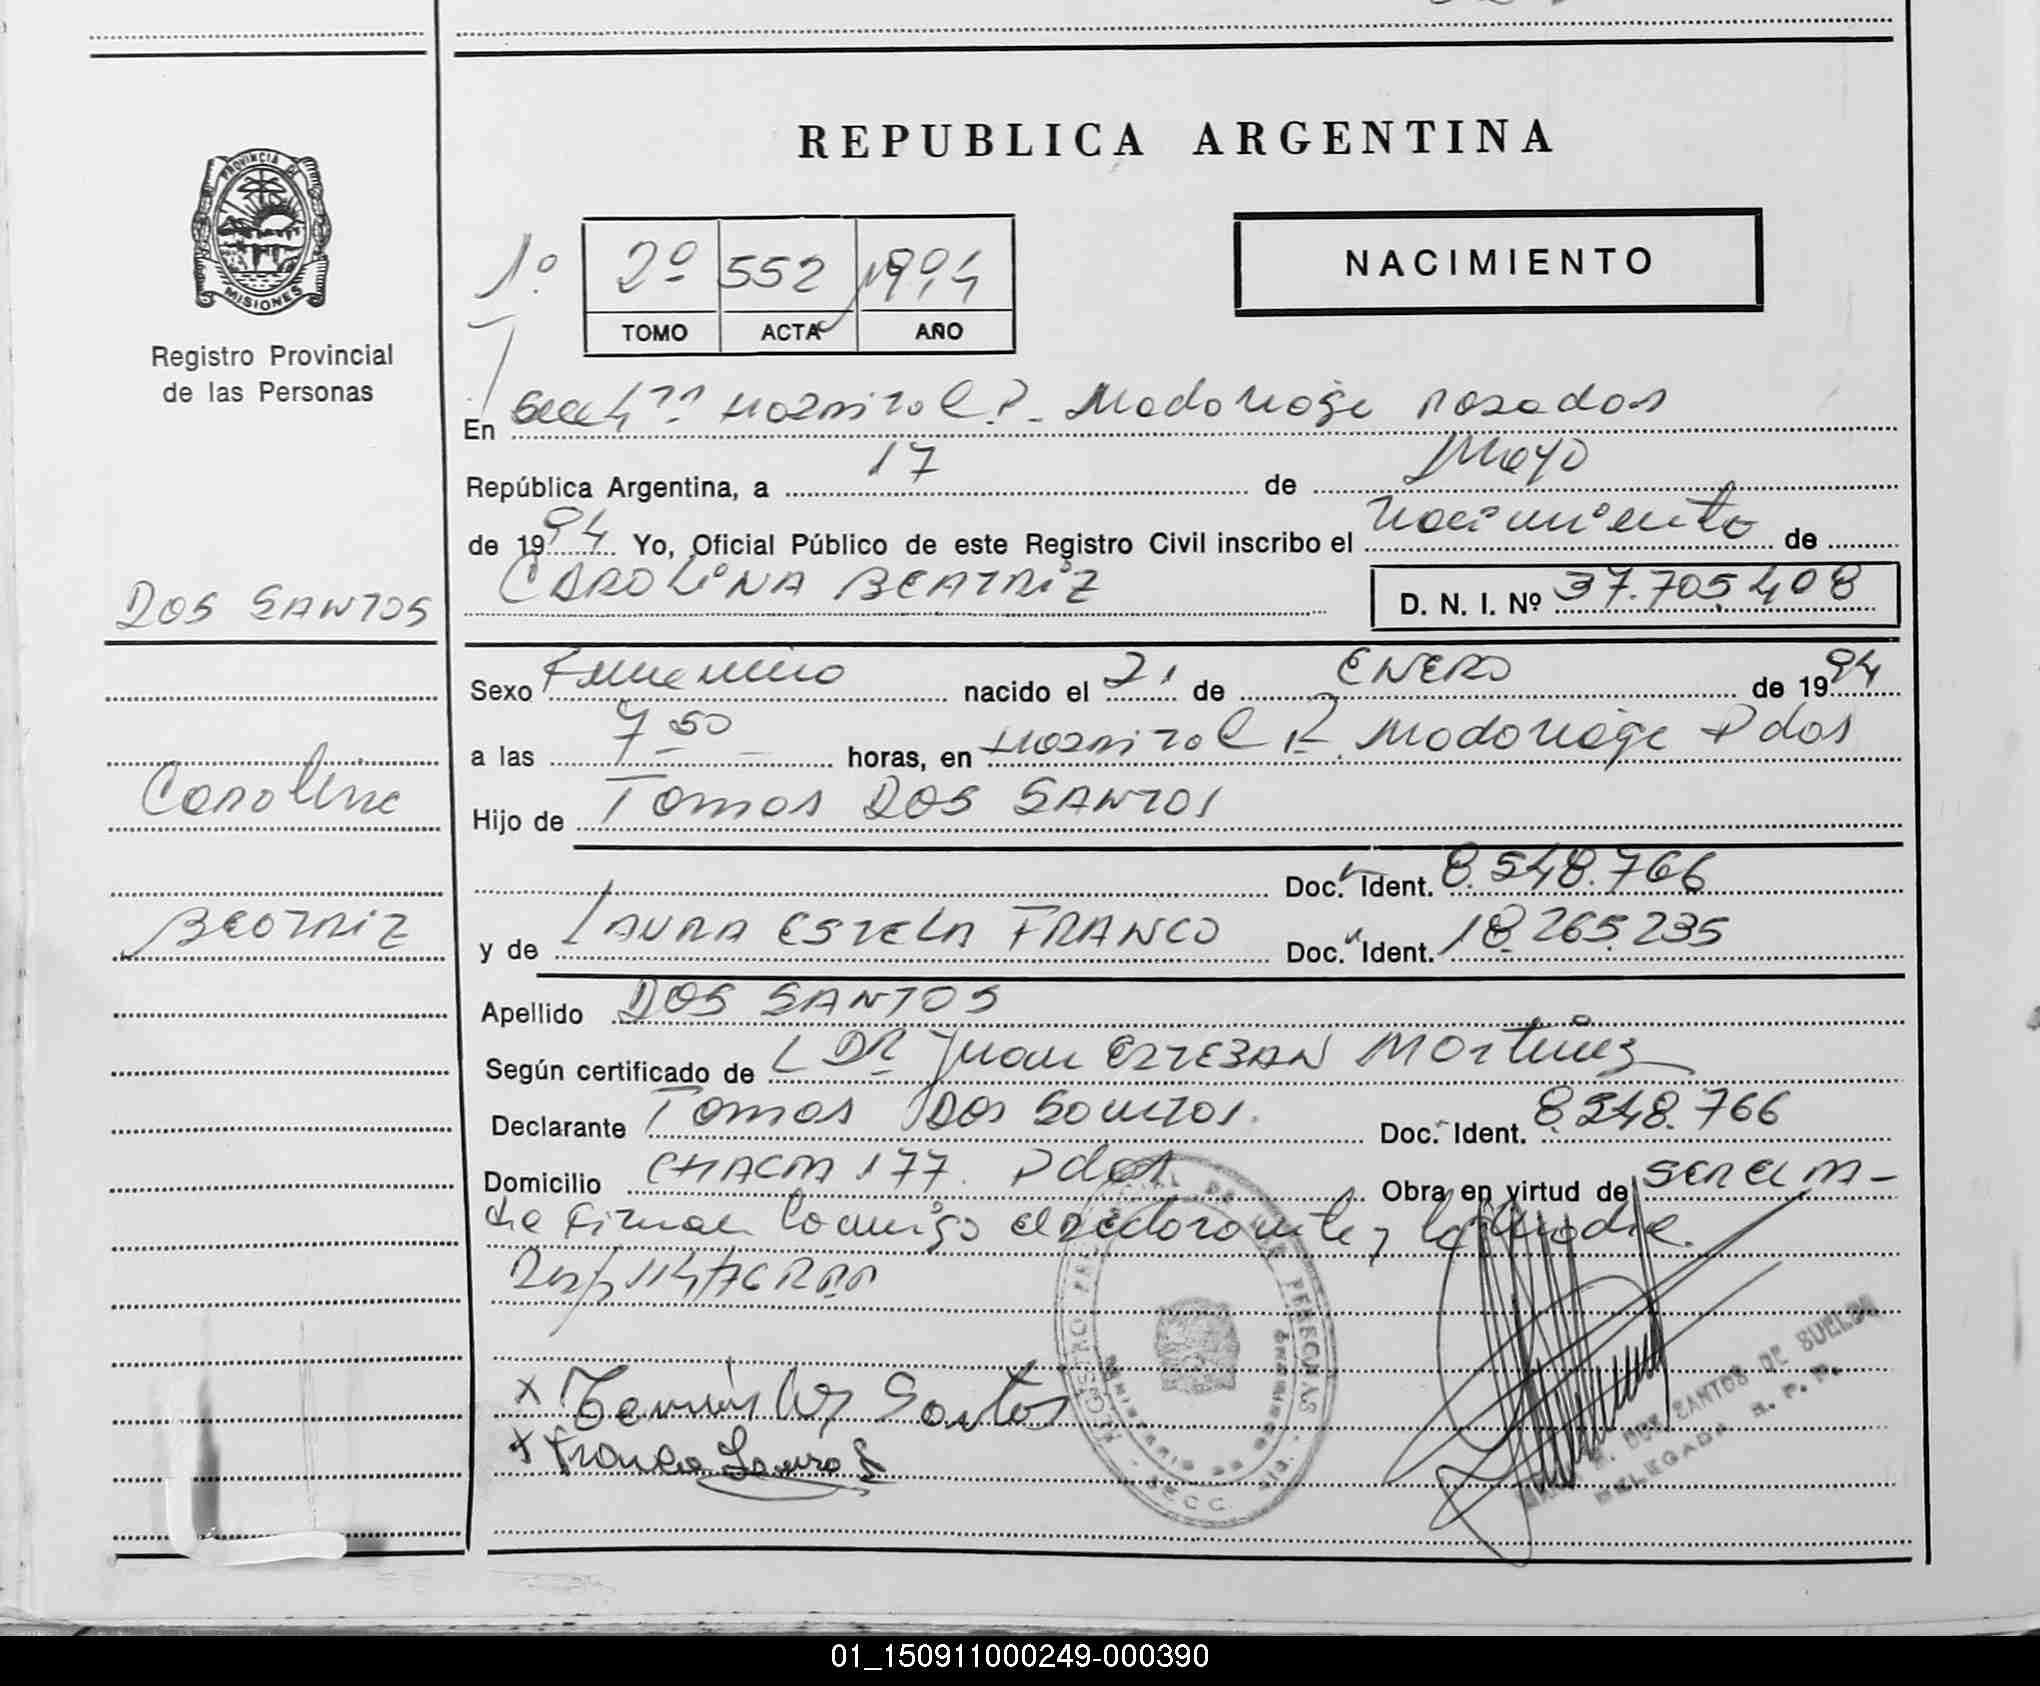 REPUBLICA ARGENTINA
PROVINCIA DE
MISIONES
Registro Provincial
de las Personas
1º
2º 552 1994
TOMO ACTA AÑO
NACIMIENTO
En Secc 4ª Hospital R. Madariaga Posadas
República Argentina, a 17 de Mayo
de 1994 Yo, Oficial Público de este Registro Civil inscribo el nacimiento de
CAROLINA BEATRIZ D. N. I. Nº 37.705.408
DOS SANTOS
Sexo Femenino nacido el 21 de ENERO de 1994
a las 7 50 horas, en Hospital R. Madariaga Pdas
Carolina
Hijo de Tomas DOS SANTOS
Doc. Ident. 8.548.766
Beatriz
y de LAURA ESTELA FRANCO Doc. Ident. 18.265.235
Apellido DOS SANTOS
Según certificado de DR Juan ESTEBAN Martinez
Declarante Tomas Dos Santos Doc. Ident. 8.548.766
Domicilio CHACRA 177. Pdas Obra en virtud de
firman conmigo el declarante y la madre.
x Dos Santos
x Franco Laura E
REGISTRO PROVINCIAL DE LAS PERSONAS
SECC.
DOS SANTOS DE
DELEGADA R. P. P.
01_150911000249-000390